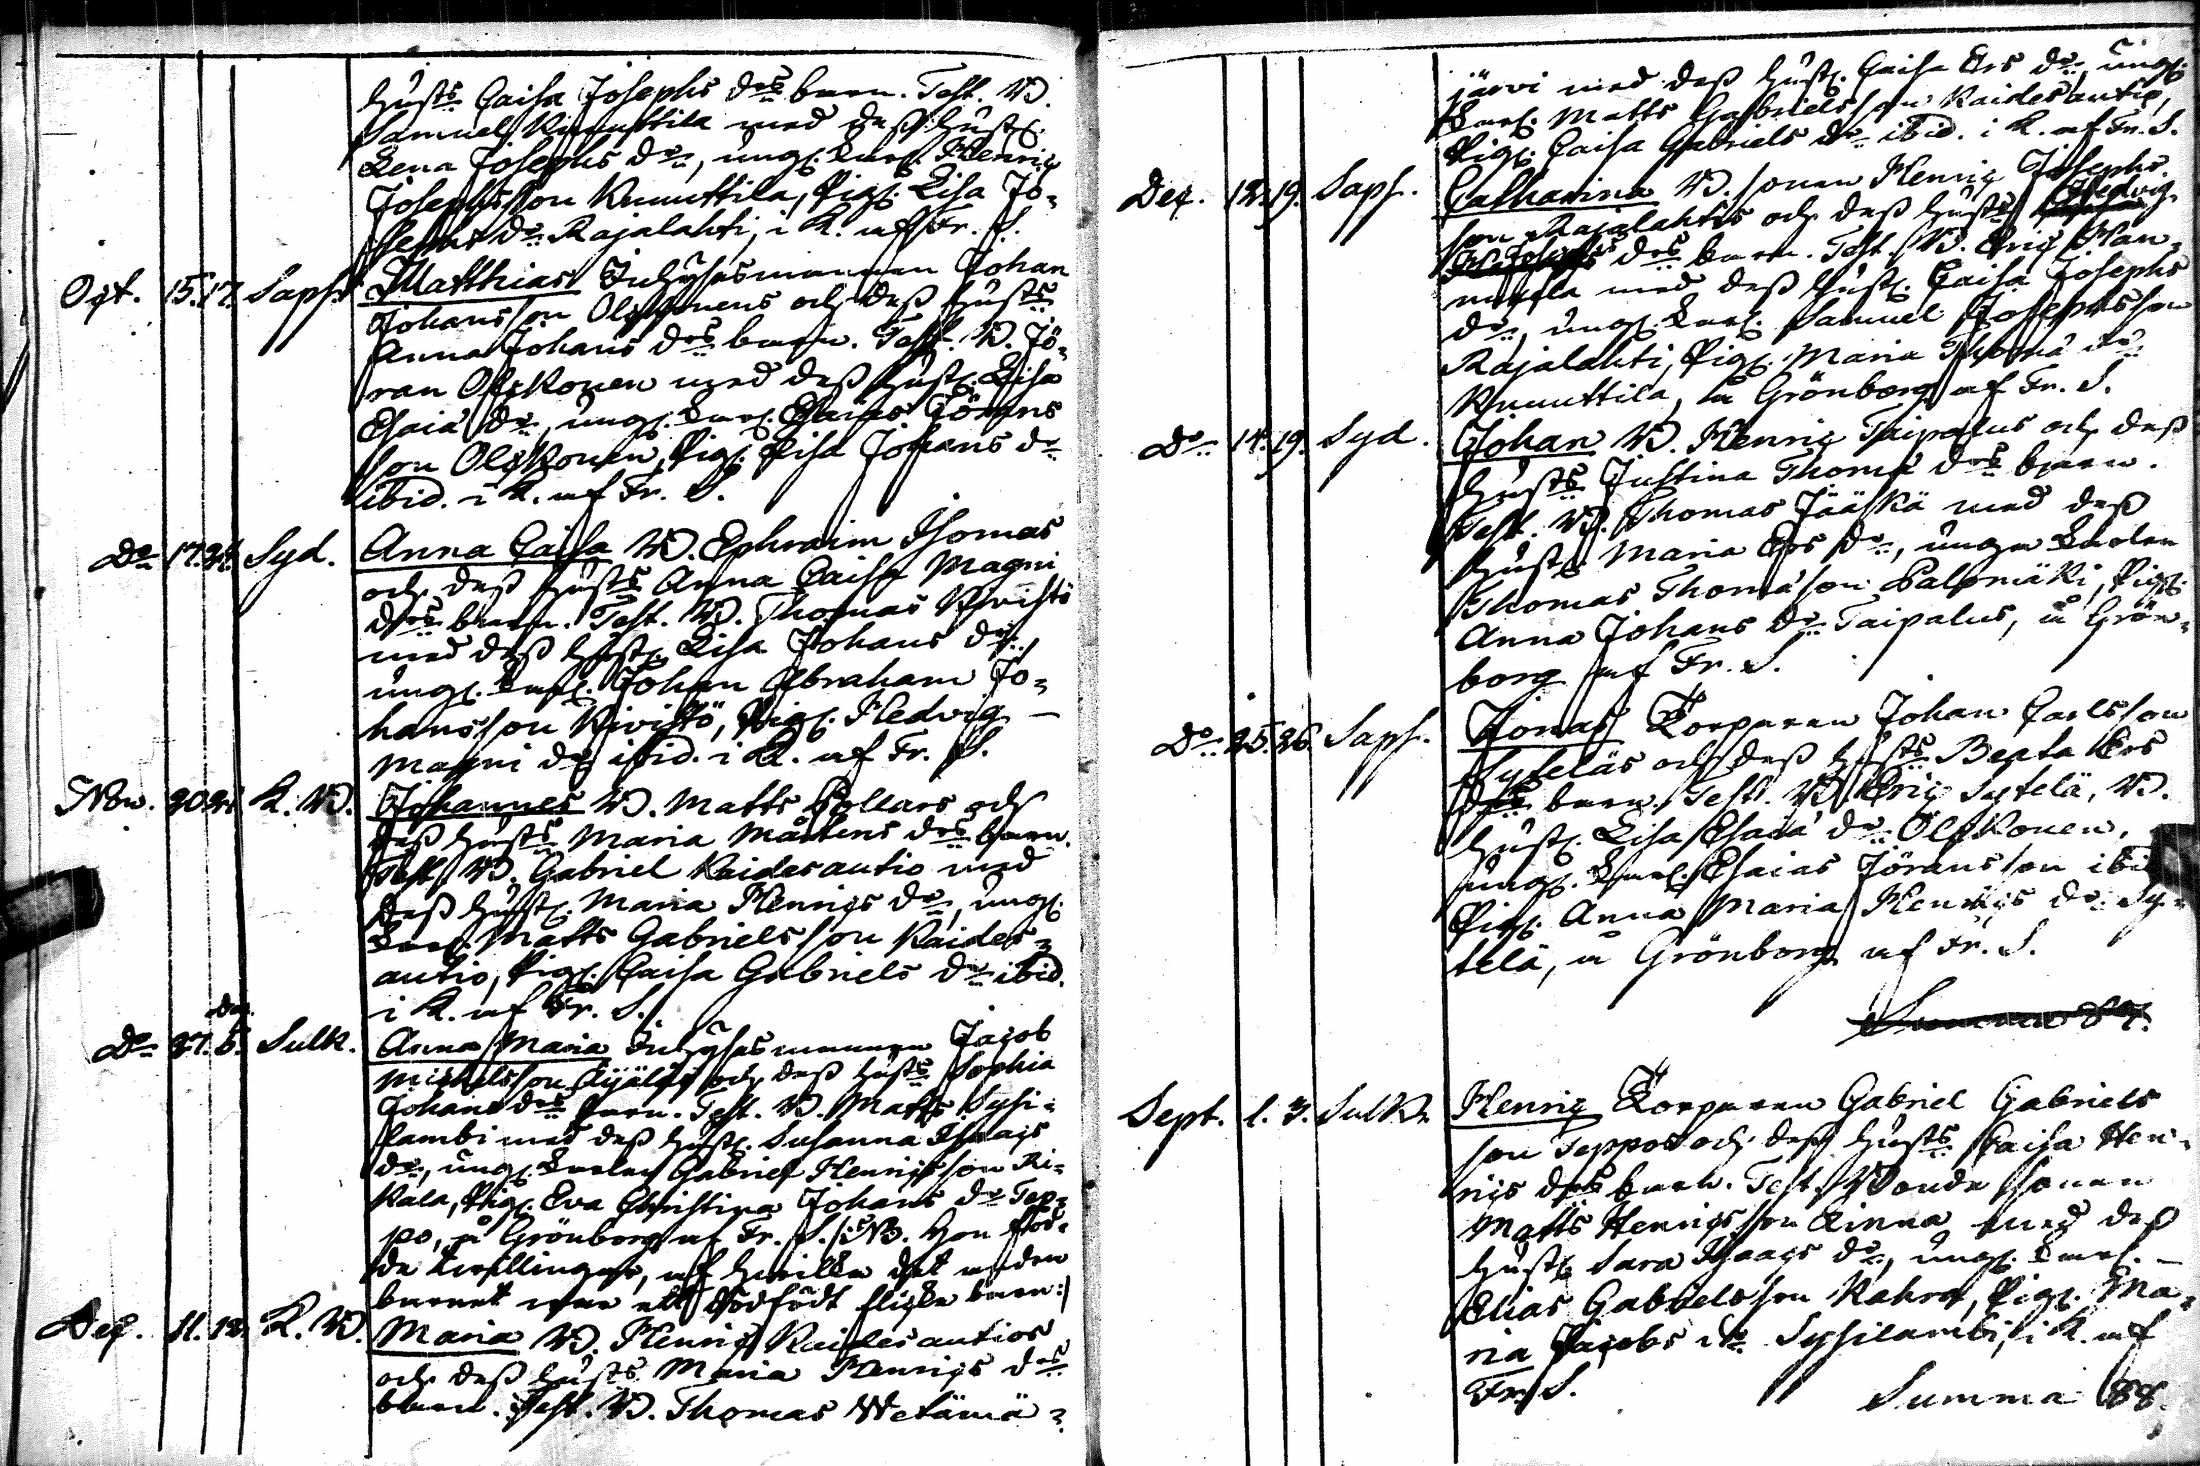 hust:s Caisa Josephs d:rs barn. Test. B.
Samuel Knuuttila med dess hust.
Lena Josephs d:r, ung. karl. Henric
Josephsson Knuuttila, Pig. Lisa Jo-
sephs d:r Rajalahti, i K. af Fr. S.
Oct. 15. 17. Saph. Matthias Inhysesmannen Johan
Johansson Olkkonens och dess hust:s
Anna Johans d:rs barn. Test. B. Jö-
ran Olkkonen med dess hust. Lisa
Esaiæ d:r, ung. karl. Esaias Jörans
son Olkkonen, Pig. Lisa Johans d:r
ibid. i K. af Fr. S.
D:o 17. 24. Syd. Anna Caisa B. Ephraim Thomas
och dess hust:s Anna Caisa Magni
d:rs barn. Test. B. Thomas Kivistö
med dess hust. Lisa Johans d:r,
ung. karl. Johan Abraham Jo-
hansson Kivistö, Pig. Hedvig
Magni d:r ibid. i K. af Fr. S.
Nov. 20. 21. K. B. Johannes B. Matts Pollars och
dess hust:s Maria Mårtens d:rs barn.
Test. B. Gabriel Raidesautio med
dess hust. Maria Henrics d:r, ung.
karl. Matts Gabrielsson Raides-
autio, Pig. Caisa Gabriels d:r ibid.
i K. af Fr. S.
Dec.
D:o 27. 5. Sulk. Anna Maria Inhysesmannen Jacob
Michelsson Äijäläs och dess hust:s Sophia
Johans d:rs barn. Test. B. Matts Sysi-
lambi med dess hust. Susanna Isaacs
d:r, ung. karlen Gabriel Henricsson Ri-
kala, Pig. Eva Christina Johans d:r Sep-
po, å Grönborg af Fr. S. /: NB. Hon föd-
de tvillingar, af hvilka det andra
barnet var ett dödfödt flicke barn :/
Dec. 11. 12. K. B. Maria B. Henric Raidesautios
och dess hust:s Maria Henrics d:rs
barn. Test. B. Thomas Wetämä-
järvi med dess hust. Caisa Ers d:r, ung.
karl. Matts Gabrielsson Raidesautio,
Pig. Caisa Gabriels d:r ibid. i K. af Fr. S.
Dec. 12. 19. Saph. Catharina B. sonen Henric Josephs
son Rajalahtis och dess hust:s Hedvig
Josephs d:rs barn. Test. B. Eric Han-
nula med dess hust. Caisa Josephs
d:r, ung. karl. Samuel Josephsson
Rajalahti, Pig. Maria Thomæ d:r
Knuuttila, å Grönborg af Fr. S.
D:o 14. 19. Syd. Johan B. Henric Taipalus och dess
hust:s Justina Thomæ d:rs barn.
Test. B. Thomas Jääskä med dess
hust. Maria Ers d:r, unga karlen
Thomas Thomæson Palomäki, Pig.
Anna Johans d:r Taipalus, å Grön-
borg af Fr. S.
D:o 25. 26. Saph. Jonas Torparen Johan Carlsson
Syteläs och dess hust:s Beata Ers
d:rs barn. Test. B. Eric Sytelä, B.
hust. Lisa Esaiæ d:r Olkkonen,
ung. karl. Esaias Jöransson ibid
Pig. Anna Maria Henrics d:r Sy-
telä, å Grönborg af Fr. S.
Summa 87.
Sept. 1. 3. Sulk. Henric Torparen Gabriel Gabriels
son Seppos och dess hust:s Caisa Hen-
rics d:rs barn. Test. Bonde sonen
Matts Henricsson Kinna med dess
hust. Sara Isaacs d:r, ung. karl.
Elias Gabrielsson Kahra, Pig. Ma-
ria Jacobs d:r Sysilambi, i K. af
Fr. S.
Summa 88.